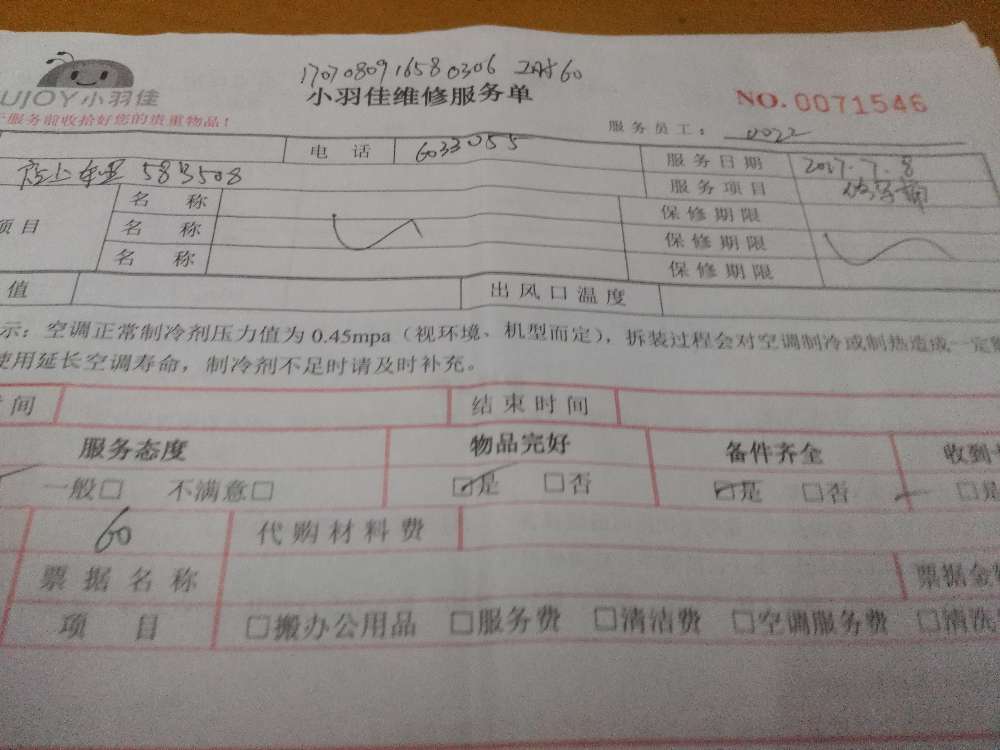 1707080916580306
60
UJOY小羽佳
小羽佳维修服务单
NO.0071546
服务前收拾好您的贵重物品!
服务员工: 0022
电话 6033055 服务日期 2017.7.8
583508 服务项目
项目 名称 保修期限
名称 保修期限
名称 保修期限
值 出风口温度
示:空调正常制冷剂压力值为0.45mpa(视环境、机型而定),拆装过程会对空调制冷或制热造成一定
使用延长空调寿命,制冷剂不足时请及时补充。
时间 结束时间
服务态度 物品完好 备件齐全 收到
一般□ 不满意□ ☑是 □否 ☑是 □否 □是
60 代购材料费
票据名称 票据金
项目 □搬办公用品 □服务费 □清洁费 □空调服务费 □清洗